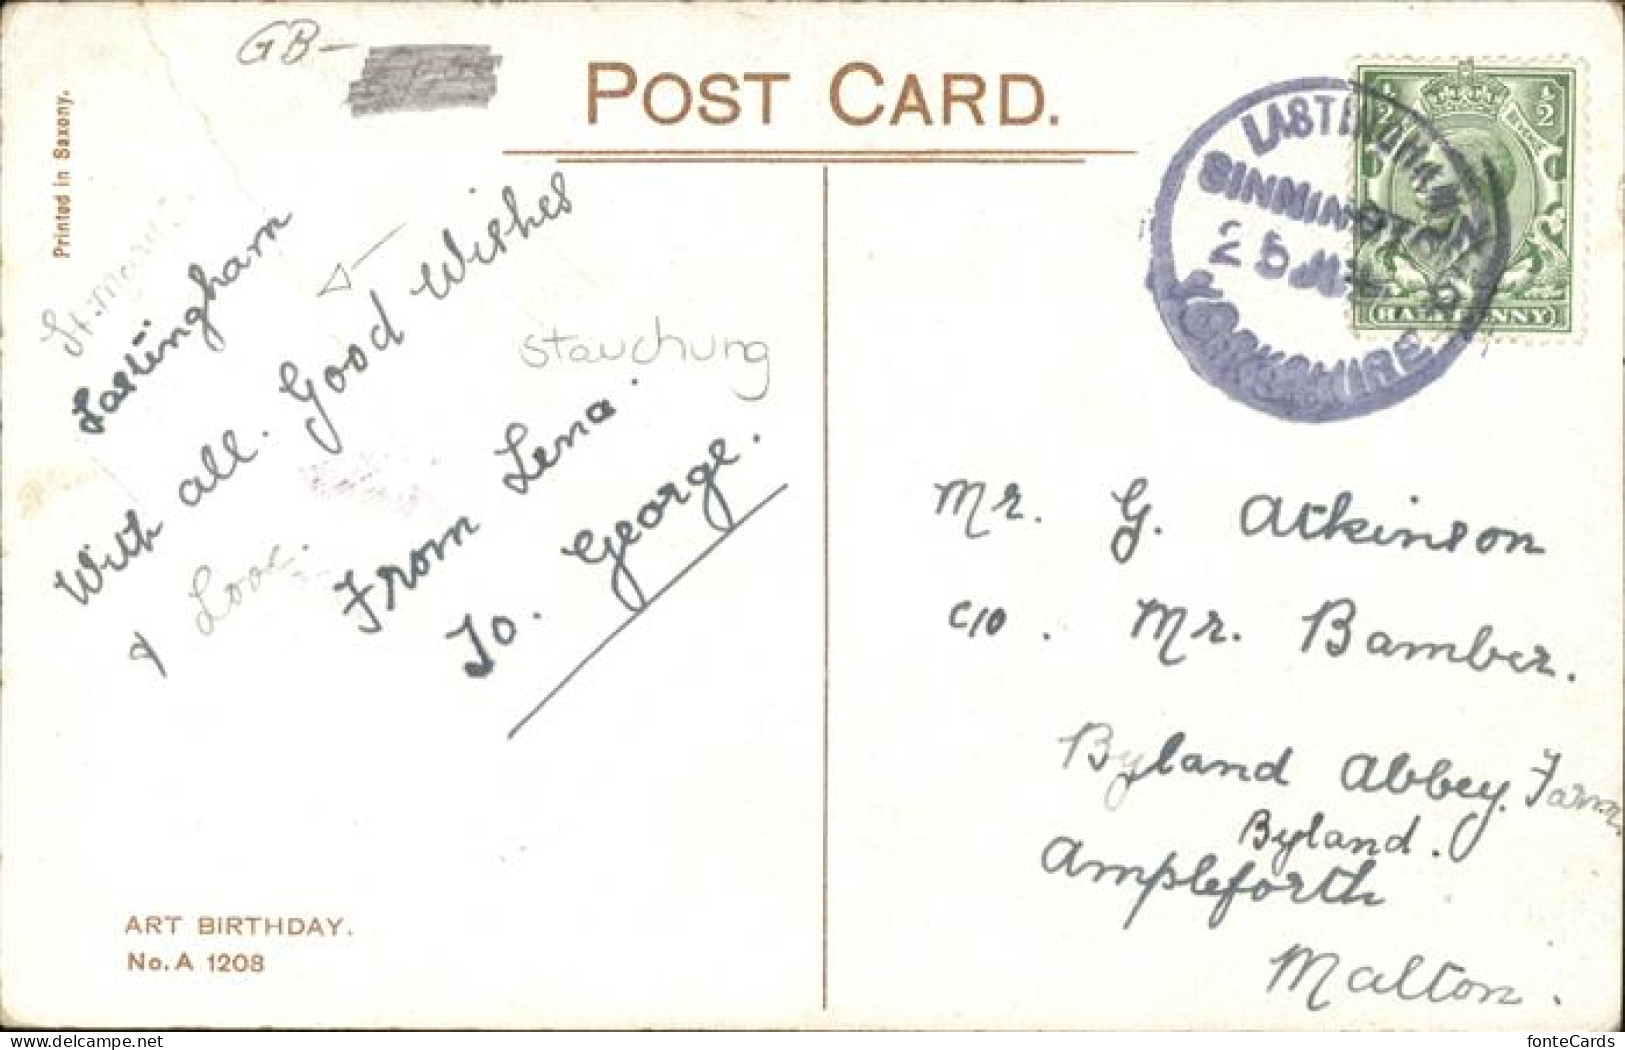 GB-
POST CARD.
Printed in Saxony.
LASTINGHAM
SINNINGTON
25
YORKSHIRE
1/2 1/2
HALFPENNY
Lastingham
With all. Good Wishes
& Love.
From Lena.
To. George.
stauchung
Mr. G. Atkinson
c/o. Mr. Bamber.
Byland Abbey. Farm
Byland.
Ampleforth
Malton.
ART BIRTHDAY.
No. A 1208
fonteCards